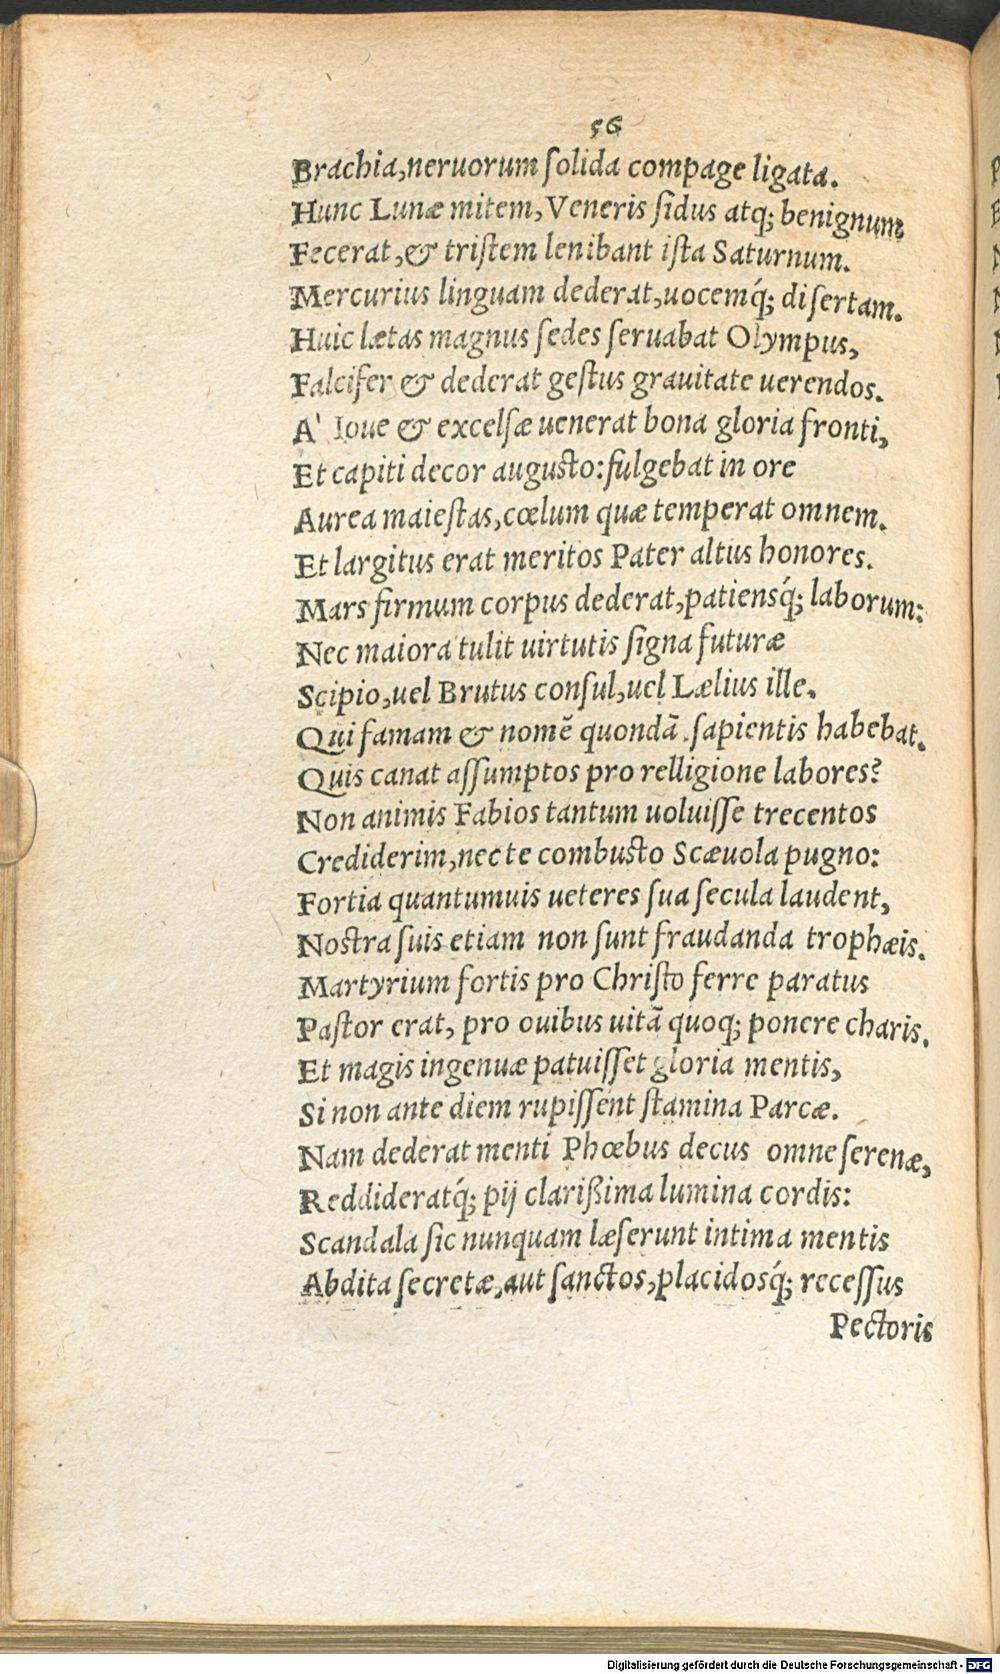 56
Brachia,neruorum ſolida compage ligata.
Hunc Lunæ mitem, Veneris ſidus atq; benignum
Fecerat,& triſtem lenibant iſta Saturnum.
Mercurius linguam dederat,uocemq́; diſertam.
Huic lætas magnus ſedes ſeruabat Olympus,
Falcifer & dederat geſtus grauitate uerendos.
A' Ioue & excelſæ uenerat bona gloria fronti,
Et capiti decor auguſto:fulgebat in ore
Aurea maieſtas,cœlum quæ temperat omnem.
Et largitus erat meritos Pater altus honores.
Mars firmum corpus dederat,patiensq́; laborum:
Nec maiora tulit uirtutis ſigna futuræ
Scipio,uel Brutus conſul,uel Lælius ille,
Qui famam & nomẽ quondã ſapientis habebat.
Quis canat aſſumptos pro relligione labores?
Non animis Fabios tantum uoluiſſe trecentos
Crediderim,nec te combuſto Scæuola pugno:
Fortia quantumuis ueteres ſua ſecula laudent,
Noſtra ſuis etiam non ſunt fraudanda trophæis.
Martyrium fortis pro Chriſto ferre paratus
Paſtor erat, pro ouibus uitã quoq; ponere charis.
Et magis ingenuæ patuiſſet gloria mentis,
Si non ante diem rupiſſent ſtamina Parcæ.
Nam dederat menti Phœbus decus omne ſerenæ,
Reddideratq́; pij clarißima lumina cordis:
Scandala ſic nunquam læſerunt intima mentis
Abdita ſecretæ,aut ſanctos,placidosq́; receſſus
Pectoris
Digitalisierung gefördert durch die Deutsche Forschungsgemeinschaft - DFG